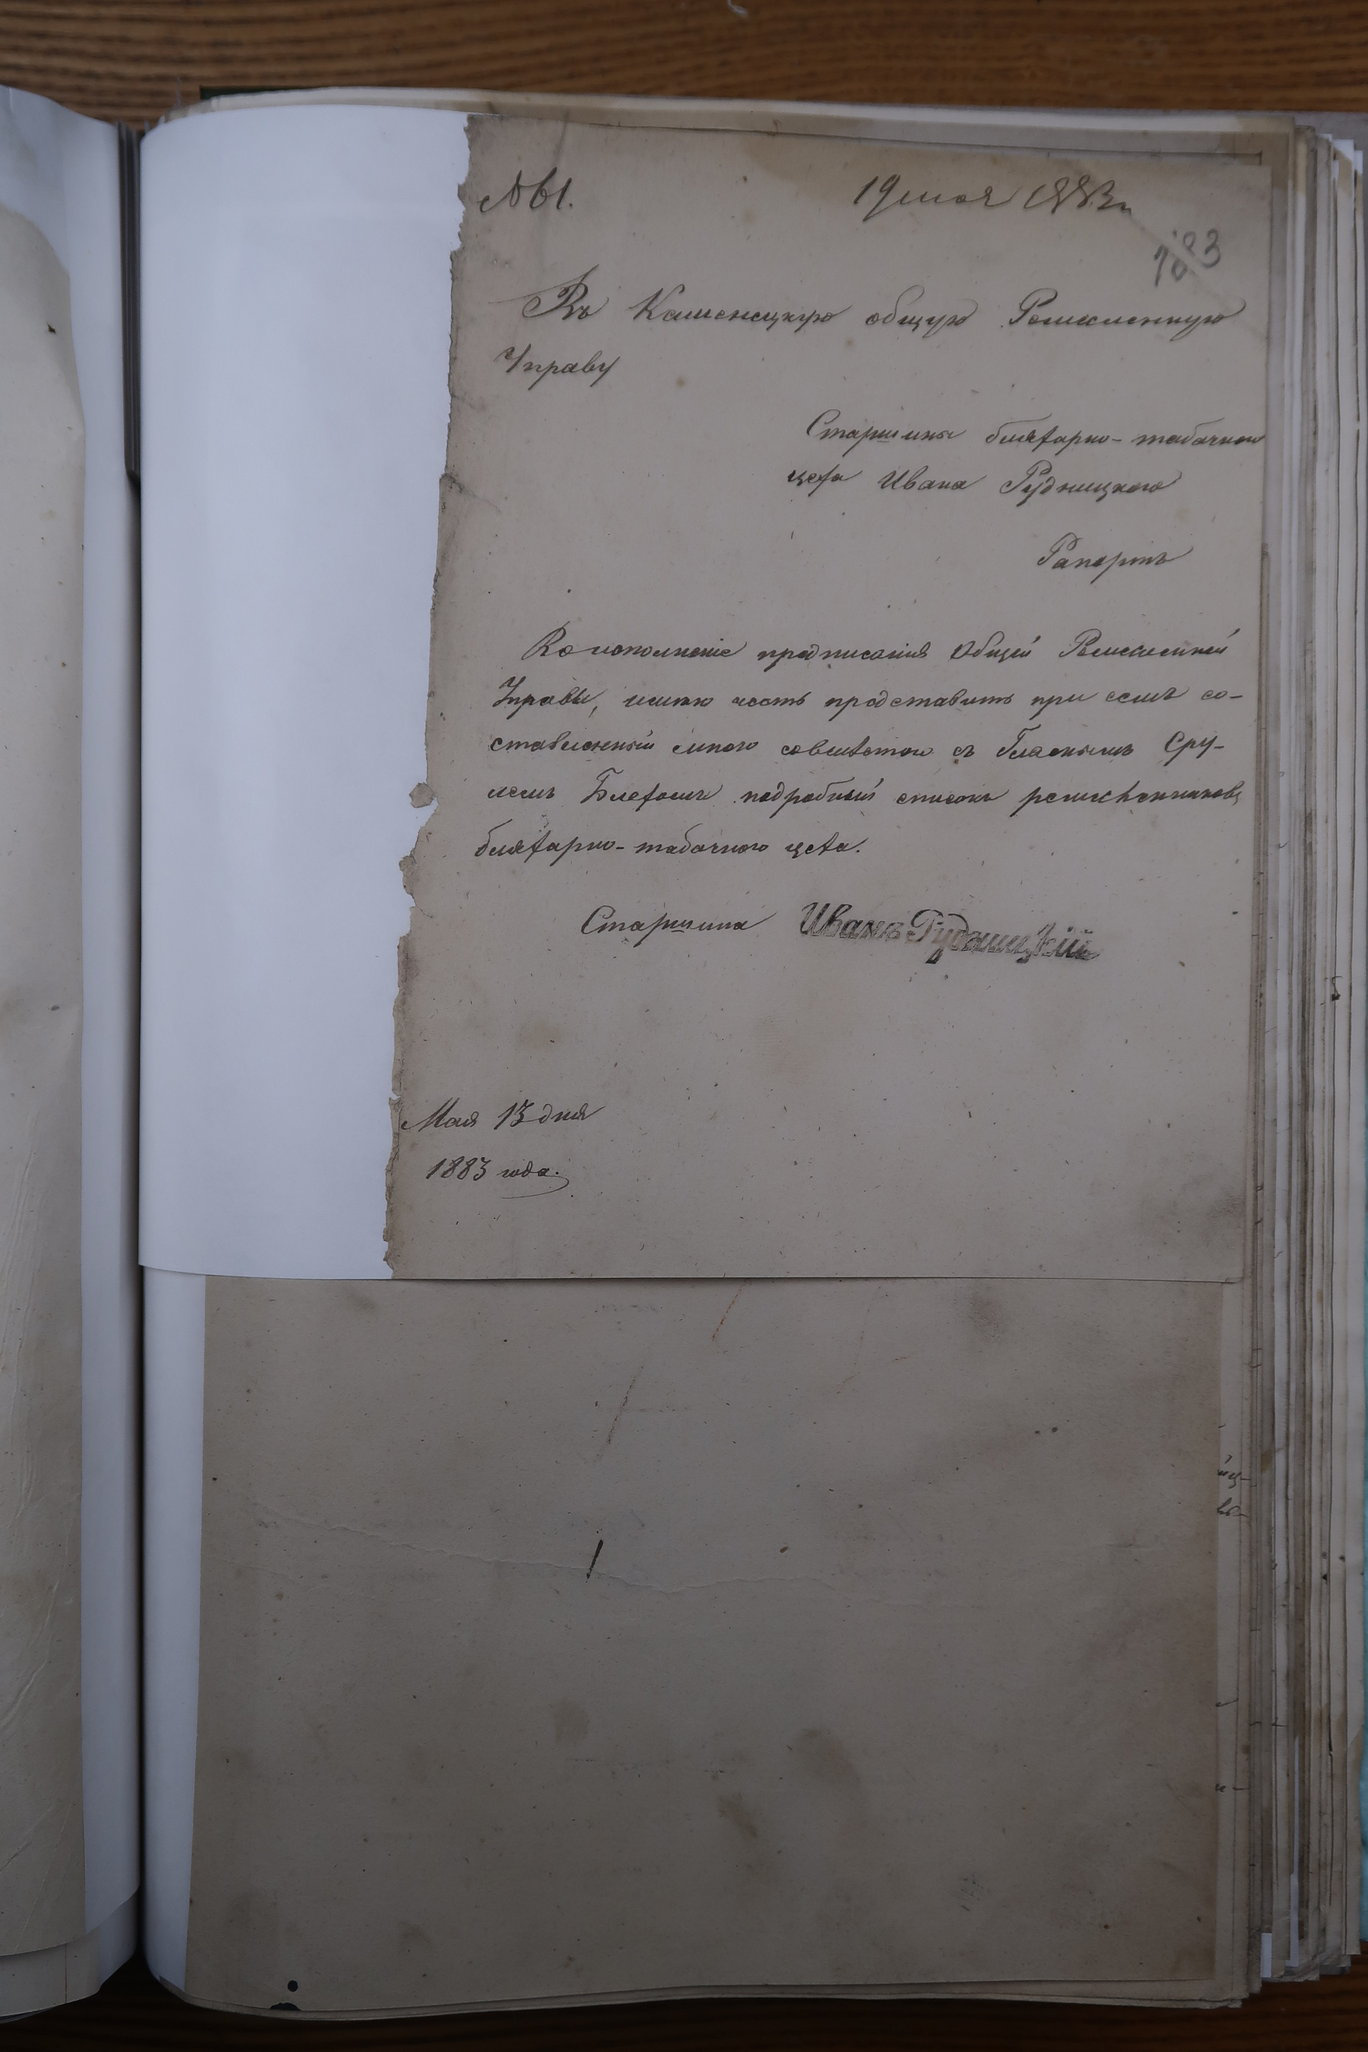 № 61.
19 мая 1883 г.
Въ Каменецкую общую Ремесленную
Управу
Старшины бляхарно-табачнаго
цеха Ивана Рудницкаго
Рапортъ
Во исполненіе предписанія Общей Ремесленной
Управы, имею честь представить при семъ со-
ставленный мною совместно съ Гласнымъ Сру-
лемъ Блехомъ подробный списокъ ремесленниковъ
бляхарно-табачного цеха.
Старшина Иванъ Рудницкій
Мая 13 дня
1883 года.